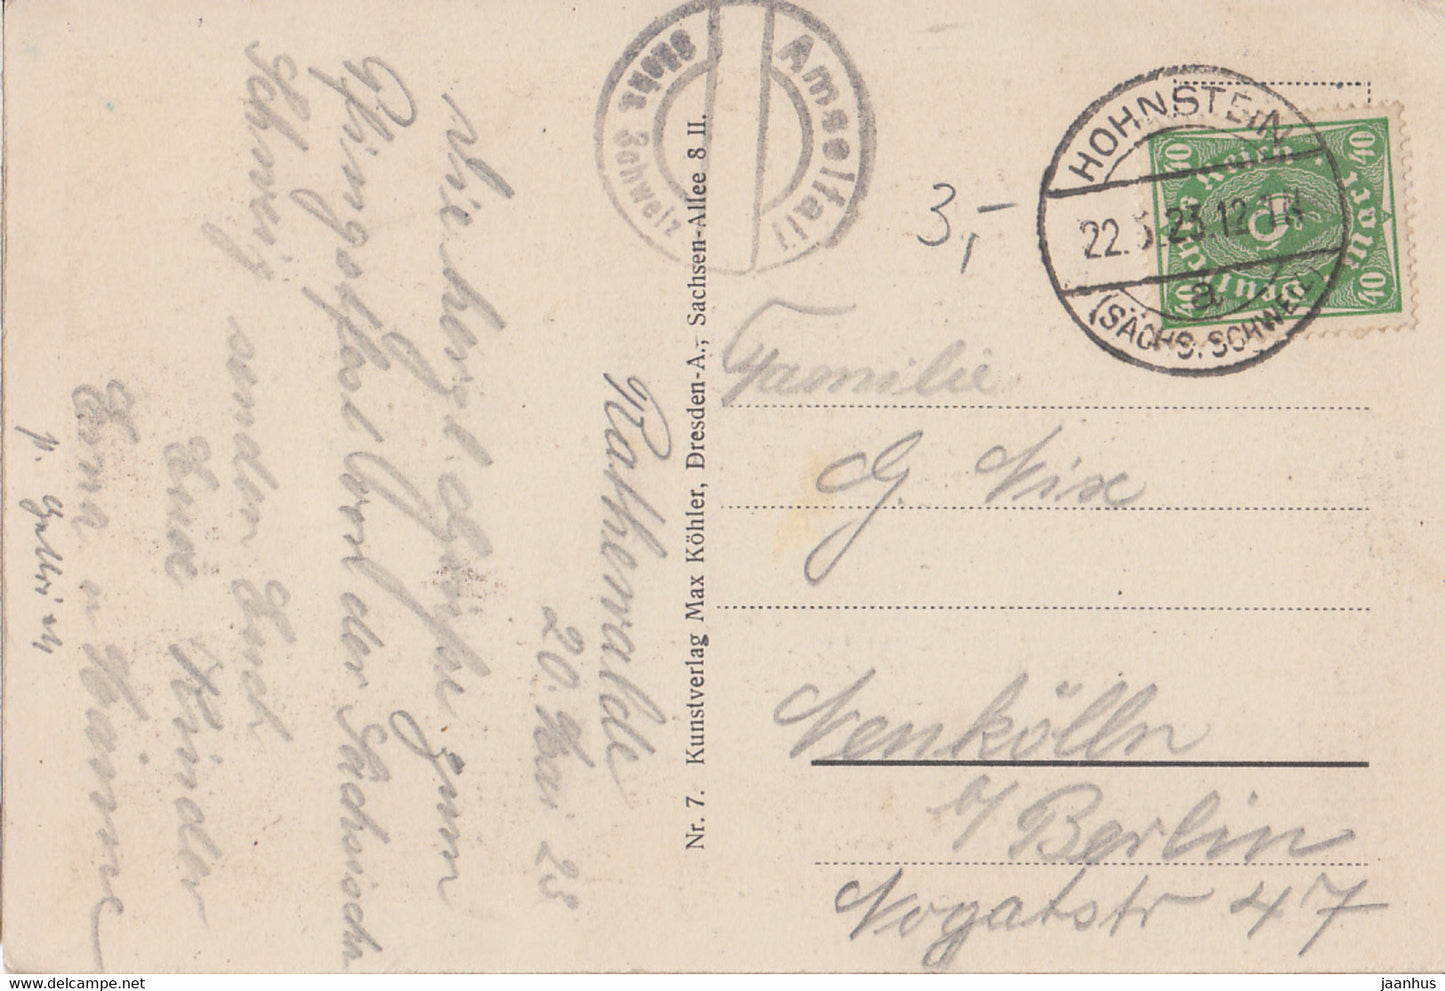 Rathewalde
20. Mai 23
Die herzl. Grüße zum
Pfingstfest von der Sächsisch
Schweiz senden Euch
Eure Kinder
Erna u Hänne
Nr. 7. Kunstverlag Max Köhler, Dresden-A., Sachsen-Allee 8 II.
Amselfall
Sächs Schweiz
3,-
HOHNSTEIN
22.5.23.12-1N
a
(SÄCHS. SCHWEIZ)
Deutsches Reich
40 40
40 40
40 Mark
Familie
G. Nix
Neukölln
b/ Berlin
Nogatstr 47
www.delcampe.net
jaanhus